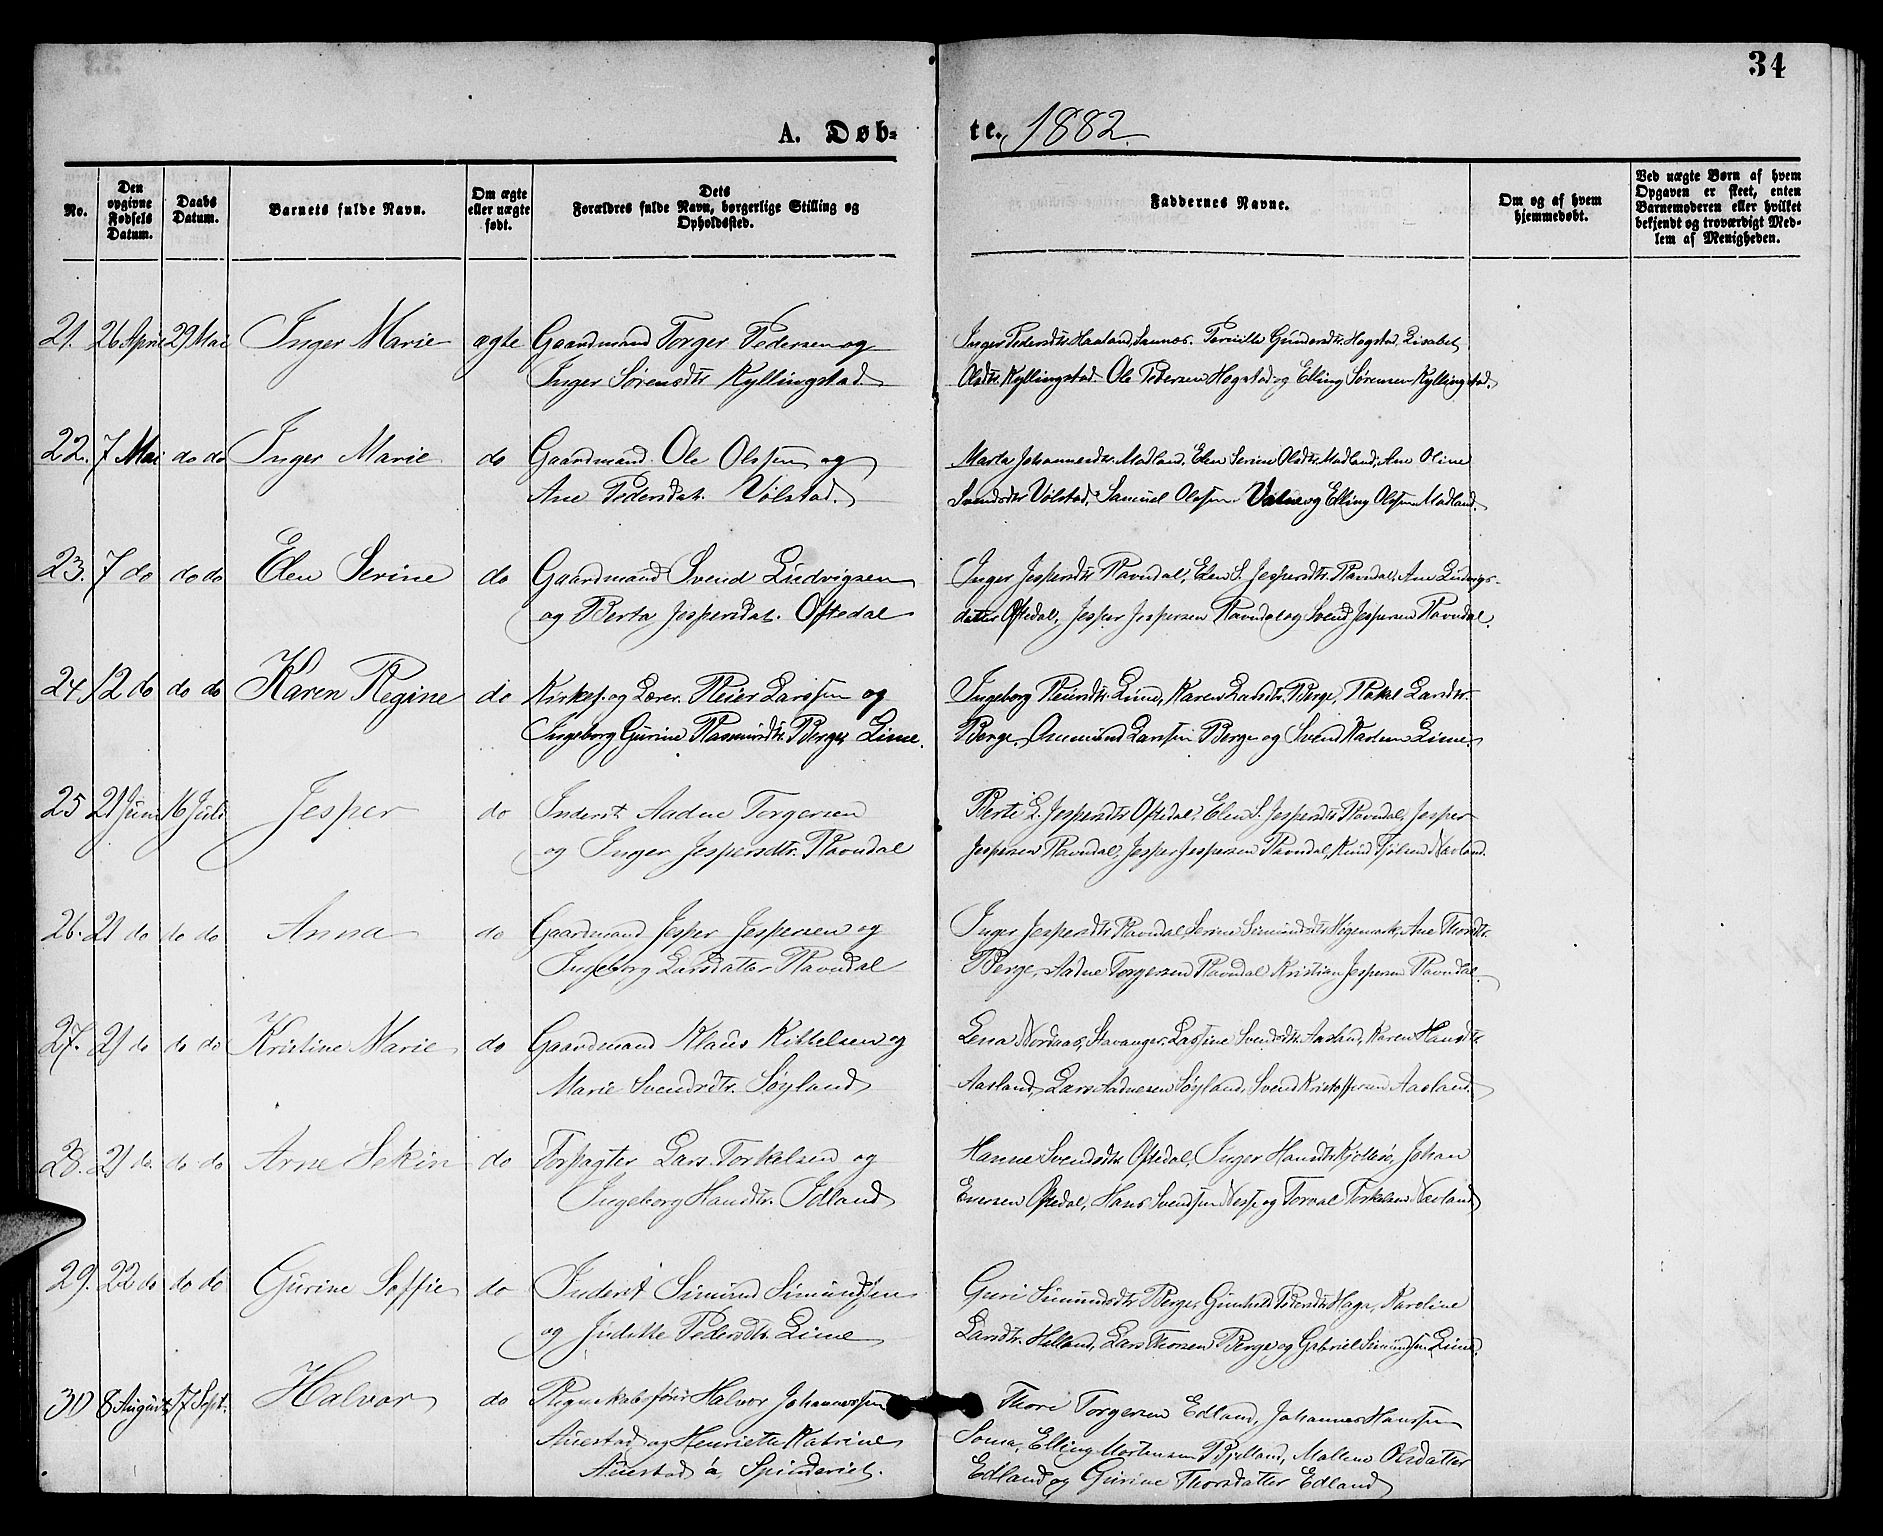 34
A. Døb=te. 1882.
No.
Den opgivne Fødsels Datum.
Daabs Datum.
Barnets fulde Navn.
Om ægte eller uægte født.
Dets Forældres fulde Navn, borgerlige Stilling og Opholdssted.
Faddernes Navne.
Om og af hvem hjemmedøbt.
Ved uægte Børn af hvem Opgaven er skeet, enten Barnemoderen eller hvilket bekjendt og troværdigt Medlem af Menigheden.
21. 26 April 29 Mai Inger Marie ægte Gaardmand Torger Pedersen og
Inger Sørensdtr Kyllingstad
Inger Pedersdtr Haaland, Sannæs. Pernille Gundersdtr. Hogstad, Lisabet
Olsdtr. Kyllingstad. Ole Pedersen Hogstad og Elling Sørensen Kyllingstad.
22. 7 Mai do do Inger Marie do Gaardmand Ole Olssen og
Ane Pedersdat. Vølstad.
Marta Johannesdtr. Madland, Elen Serine Olsdtr. Madland, Ane Oline
Svendsdtr Vølstad, Samuel Olssen og Elling Olssen Madland.
23. 7 do do do Elen Serine do Gaardmand Svend Ludvigsen
og Berta Jespersdat. Oftedal
Inger Jespersdtr Ravndal, Elen S. Jespersdtr. Ravndal, Ane Ludvigs-
datter Oftedal, Jesper Jespersen Ravndal og Svend Jespersen Ravndal.
24. 12 do do do Karen Regine do Kirkes. og Lærer. Reier Larssen og
Ingeborg Gurine Rasmusdtr. Berge Lime.
Ingeborg Reiersdtr. Lime, Karen Larsdtr. Berge, Rakel Larsdtr.
Berge, Osmund Larssen Berge og Svend Lime.
25 21 Juni 16 Juli Jesper do Inderst Aadne Torgersen
og Inger Jespersdtr. Ravndal
Berte L. Jespersdtr Oftedal, Elen S. Jespersdtr Ravndal, Jesper
Jespersen Ravndal, Jesper Jespersen Ravndal, Knud Tjølsen Nævland.
26. 21 do do do Anna do Gaardmand Jesper Jespersen og
Ingeborg Larsdatter Ravndal
Inger Jespersdtr Ravndal, Serine Simundsdtr Høgemark, Ane Thorsdtr.
Berge, Aadne Torgersen Ravndal Kristian Jespersen Ravndal
27. 21 do do do Kristine Marie do Gaardmand Klaus Kittelsen og
Marie Svendsdtr. Søyland
Lena Nordaas, Stavanger. Lastine Svendsdtr. Aasland, Karen Hansdtr.
Aasland, Lars Aadnesen Søyland, Svend Kristoffersen Aasland.
28. 21 do. do do Arne Sekin do Forpagter Lars Torkelsen og
Ingeborg Hansdtr. Idland
Hanne Svendsdtr Oftedal, Inger Hansdtr Kjøllesø, Johan
Evensen Oftedal, Hans Svendsen Nesse og Torval Torkelsen Nævland
29. 22 do do do Gurine Soffie do Inderst Simund Simundsen
og Judette Pedersdtr. Lime
Guri Simundsdtr Berge, Gunhild Pedersdtr Haga, Karoline
Larsdtr. Helland, Lars Thorsen Berge og Gabriel Simundsen Lime.
30 8 August 17 Sept. Halvor do Regnskabsfører Halvor Johannessen
Auestad og Henriette Katrine
Auestad á Spinderiet.
Thore Torgersen Edland, Johannes Hanssen
Soma, Elling Mortensen Bjelland, Mallene Olsdatter
Edland og Gurine Thorsdatter Edland